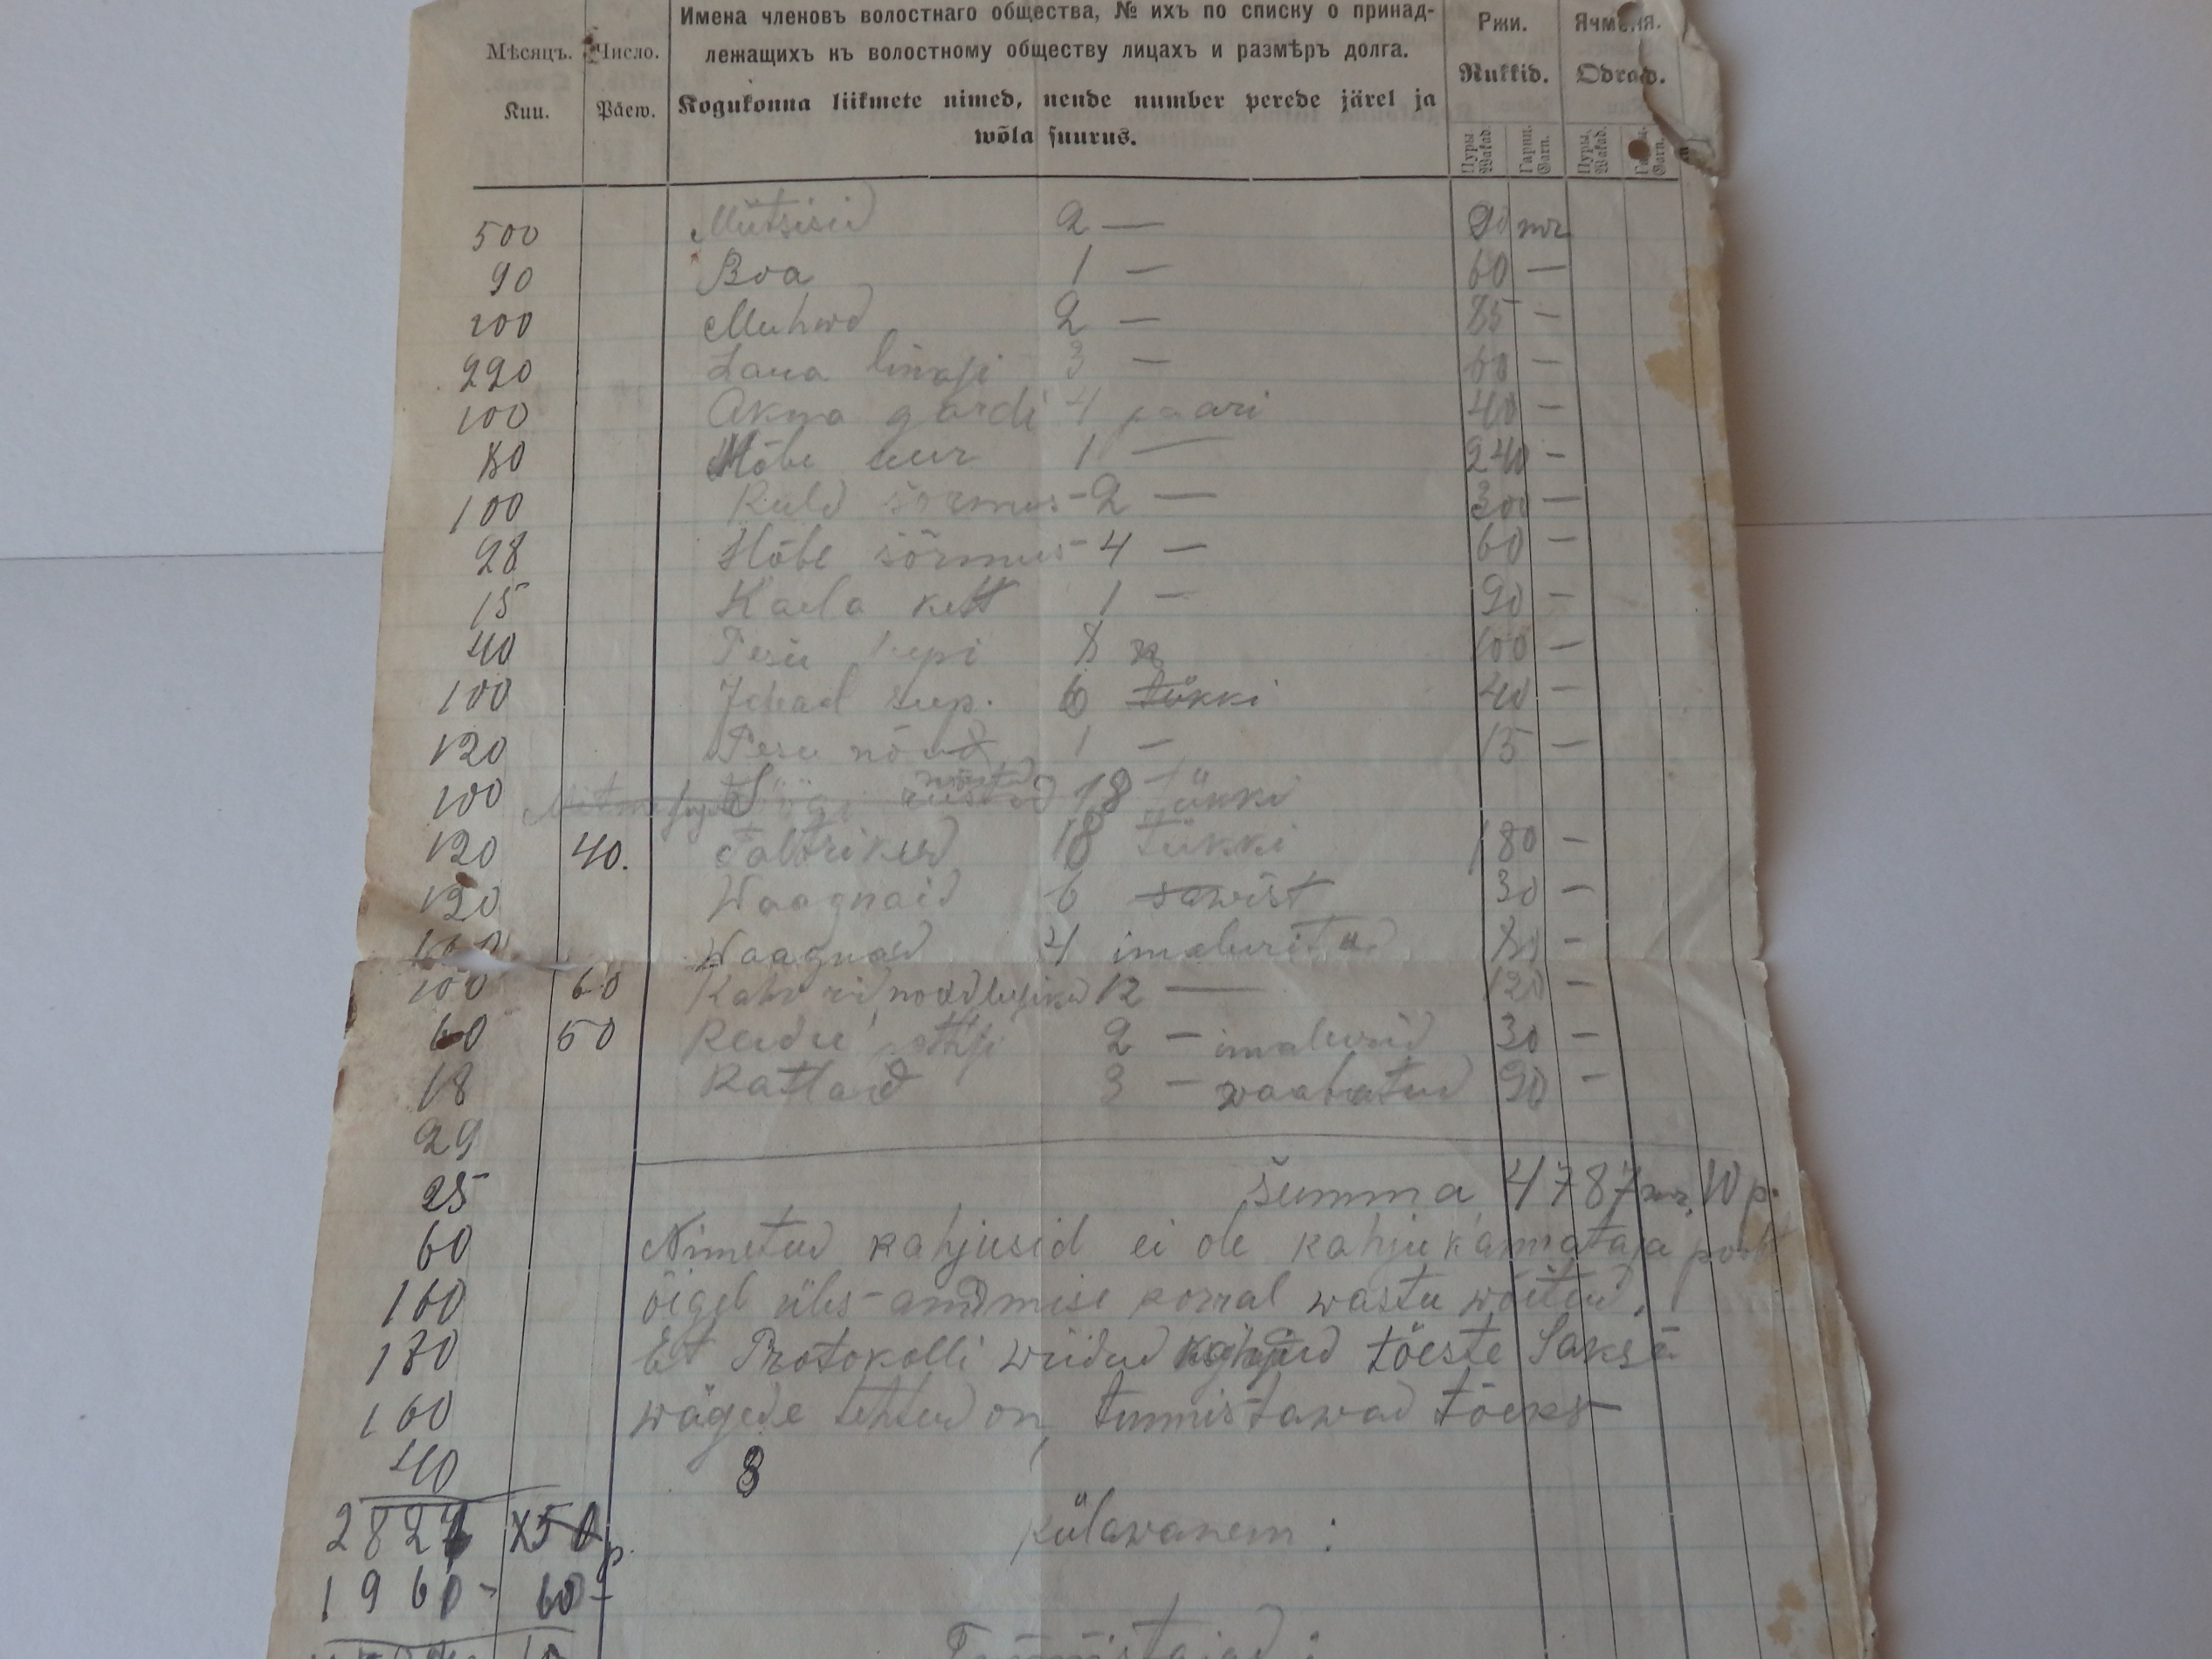 Имена членовъ волостнаго общества, № ихъ по списку о принад-
лежащихъ къ волостному обществу лицахъ и размѣръ долга.
Kogukonna liikmete nimed, nende number perede järel ja
wõla suurus.
Мѣсяцъ. Число. Ржи. Ячменя.
Kuu. Päew. Rukkid. Odrad.
Пуры. Wakad. Гарнц. Garn. Пуры. Wakad. Garn.
500 Mütsisid 2 — 90 mr
90 Boa 1 — 60 —
200 Muhwd 2 — 85 —
220 Laua 3 — 60 —
100 Akna gardi 4 paari 40 —
80 Hõbe uur 1 — 240 —
100 Kuld sõrmus - 2 — 300 —
28 Hõbe sõrmus - 4 — 60 —
15 Kaela kett 1 — 90 —
40 Pesu 8 100 —
100 6 tükki 40 —
120 Pesu nõud 1 — 15 —
100 Söögi 18 tükki
120 40. Taldrikud 18 tükki 180 —
120 Waagnaid 6 sawist 30 —
Waagnad 4 imaleritud 80 —
100 60 12 — 120 —
60 50 2 — 30 —
18 Katlaid 3 — waabatud 90 —
29
25 Summa 4787 mr. 10 p.
60 Nimetud kahjusid ei ole kahju kannataja poolt
160 õigel üles-andmise korral wastu wõetud.
180 Et Protokolli wiidud kahjud tõeste Saksa
160 wägede tehtud on, tunnistawad tõeks
40 3
282 x50 p. Külawanem :
196 - 60 -
Tunnistajad :